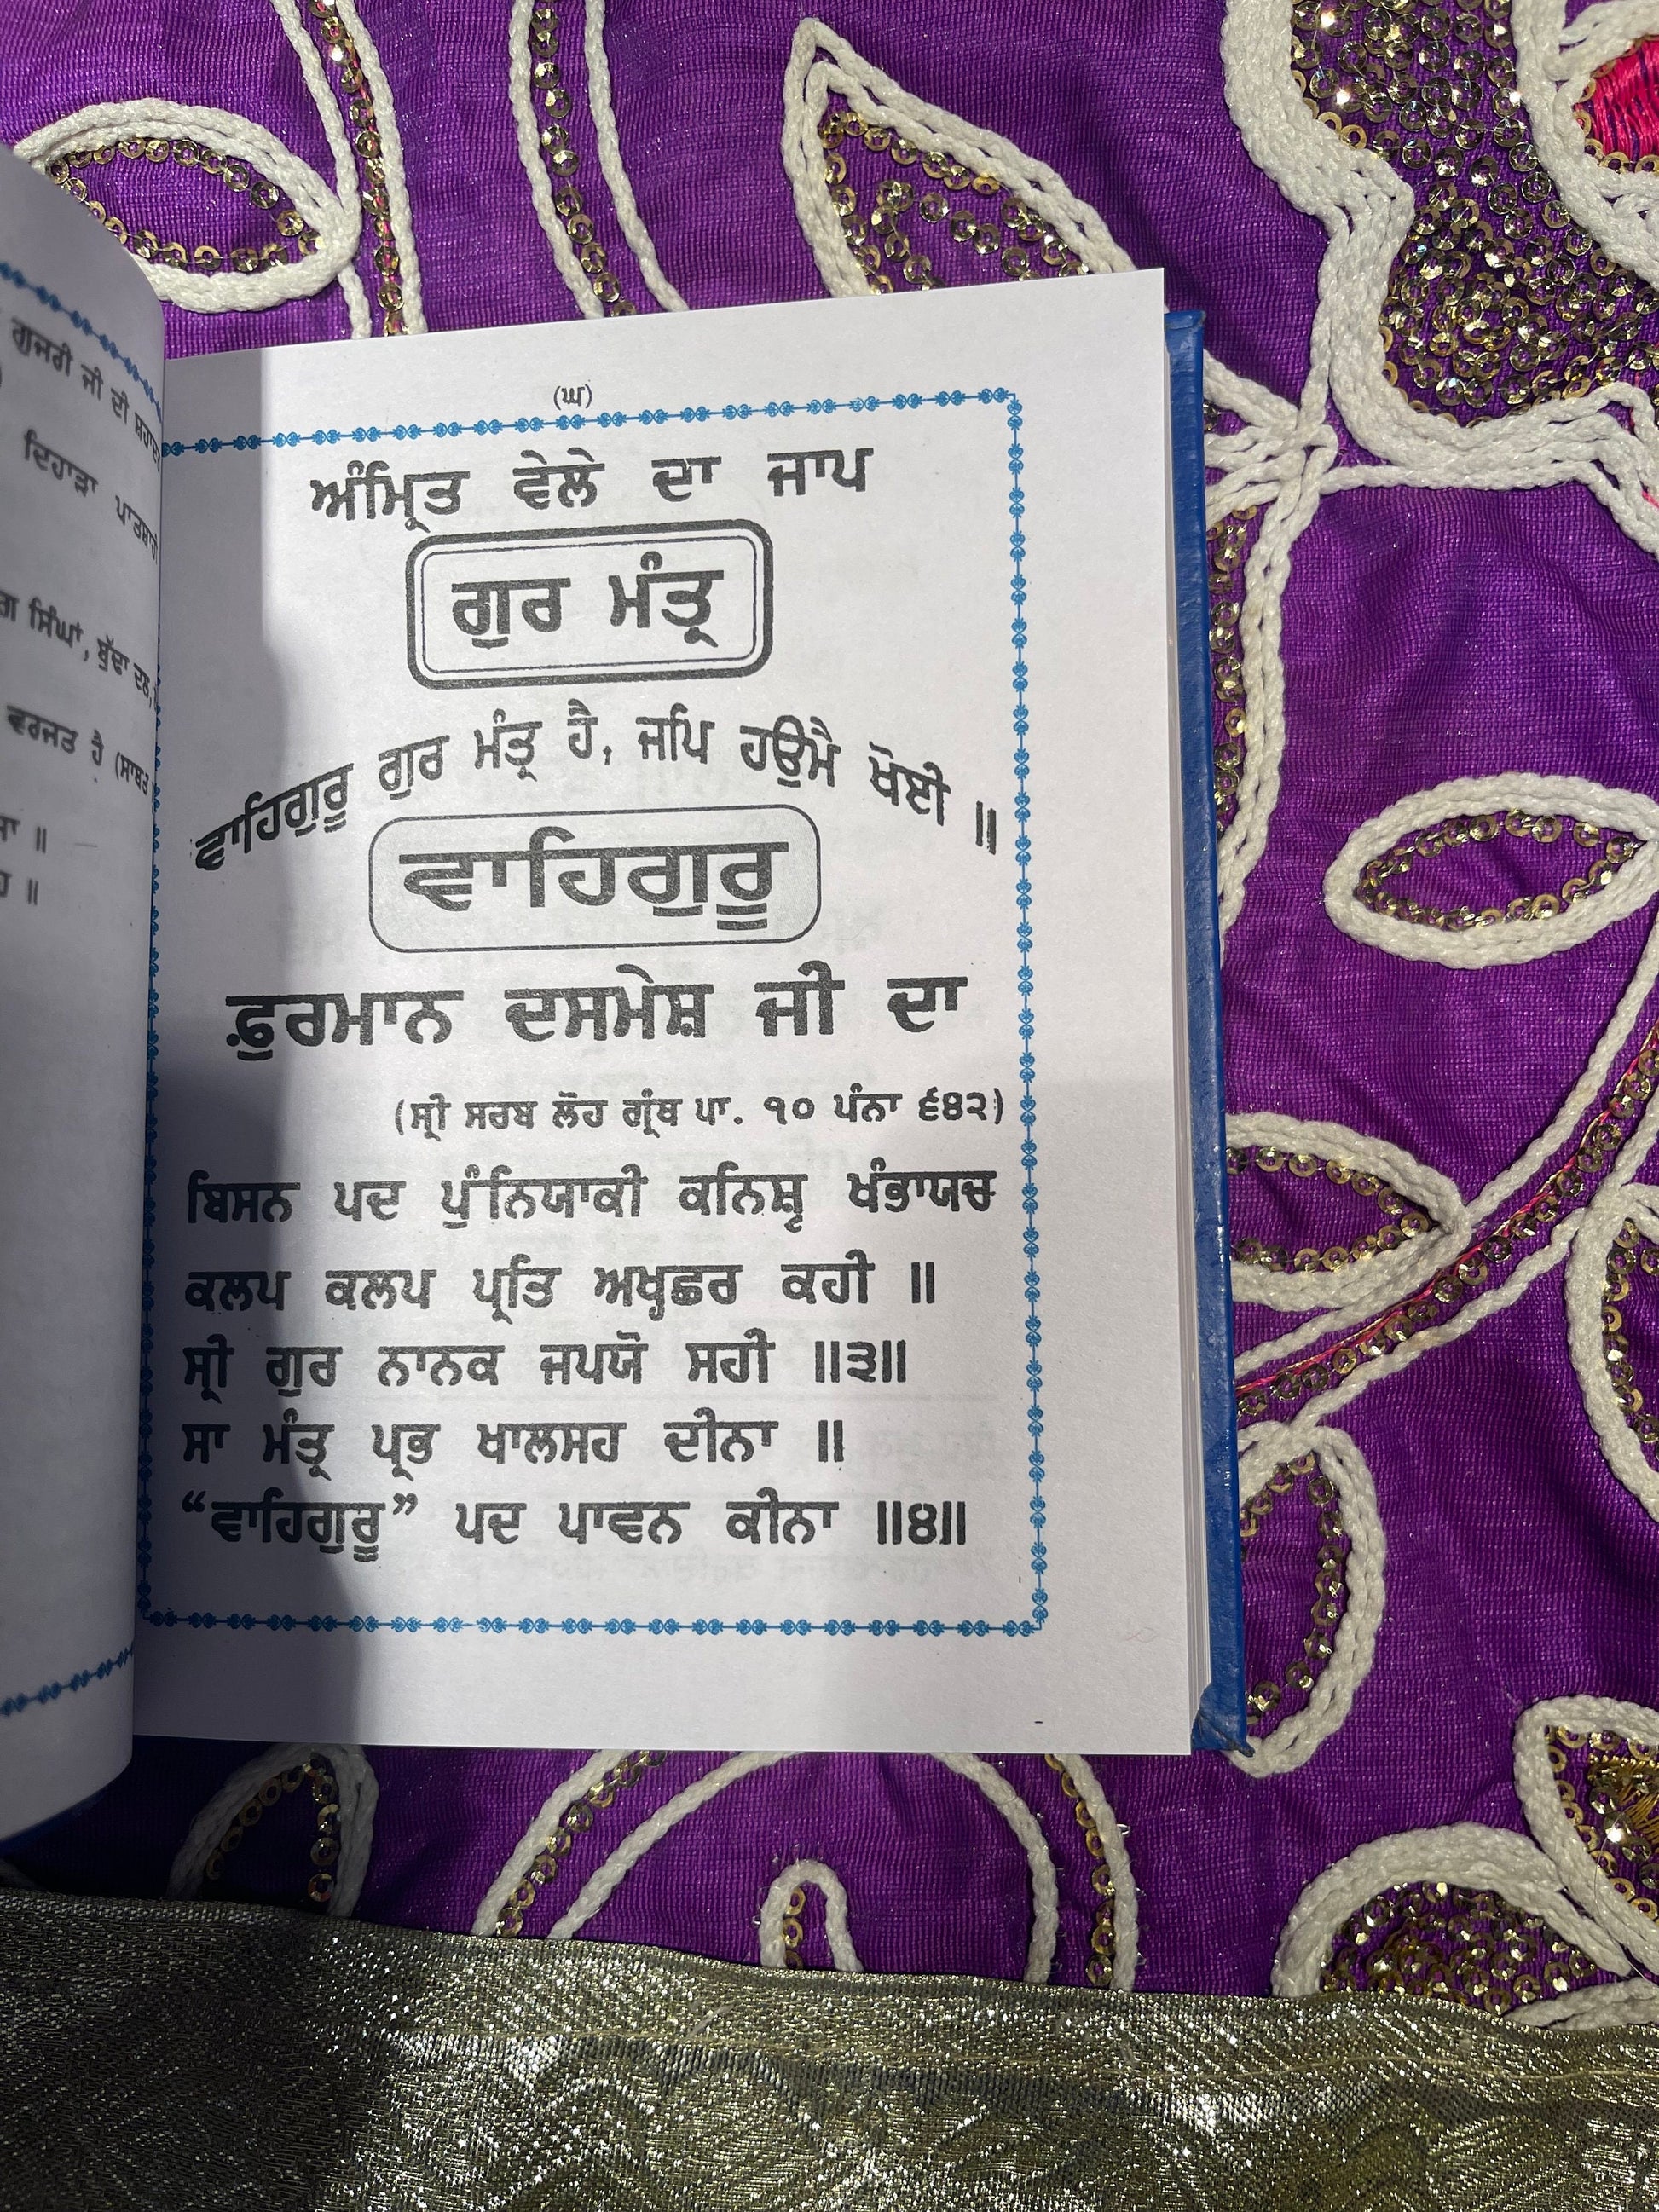 ਗੁਜਰੀ ਜੀ ਦੀ
ਦਿਹਾੜਾ
ਸਿੰਘਾਂ, ਬੁੱਢਾ ਦਲ,
ਵਰਜਤ ਹੈ
(ਘ)
ਅੰਮ੍ਰਿਤ ਵੇਲੇ ਦਾ ਜਾਪ
ਗੁਰ ਮੰਤ੍ਰ
ਵਾਹਿਗੁਰੂ ਗੁਰ ਮੰਤ੍ਰ ਹੈ, ਜਪਿ ਹਉਮੈ ਖੋਈ ॥
ਵਾਹਿਗੁਰੂ
ਫ਼ੁਰਮਾਨ ਦਸਮੇਸ਼ ਜੀ ਦਾ
(ਸ੍ਰੀ ਸਰਬ ਲੋਹ ਗ੍ਰੰਥ ਪਾ. ੧੦ ਪੰਨਾ ੬੪੨)
ਬਿਸਨ ਪਦ ਪੁੰਨਿਯਾਕੀ ਕਨਿਸ਼੍ਟ ਖੰਭਾਯਚ
ਕਲਪ ਕਲਪ ਪ੍ਰਤਿ ਅਖ੍ਯਛਰ ਕਹੀ ॥
ਸ੍ਰੀ ਗੁਰ ਨਾਨਕ ਜਪਯੋ ਸਹੀ ॥੩॥
ਸਾ ਮੰਤ੍ਰ ਪ੍ਰਭ ਖਾਲਸਹ ਦੀਨਾ ॥
“ਵਾਹਿਗੁਰੂ” ਪਦ ਪਾਵਨ ਕੀਨਾ ॥੪॥